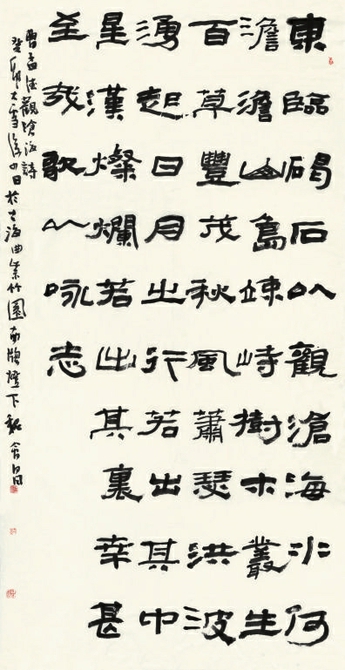 東臨碣石以觀滄海水何
澹澹山島竦峙樹木叢生
百草豐茂秋風蕭瑟洪波
湧起日月之行若出其中
星漢燦爛若出其裏幸甚
至哉歌以咏志
曹孟德觀滄海詩
癸卯大雪後四日於古海曲紫竹園南牖燈下